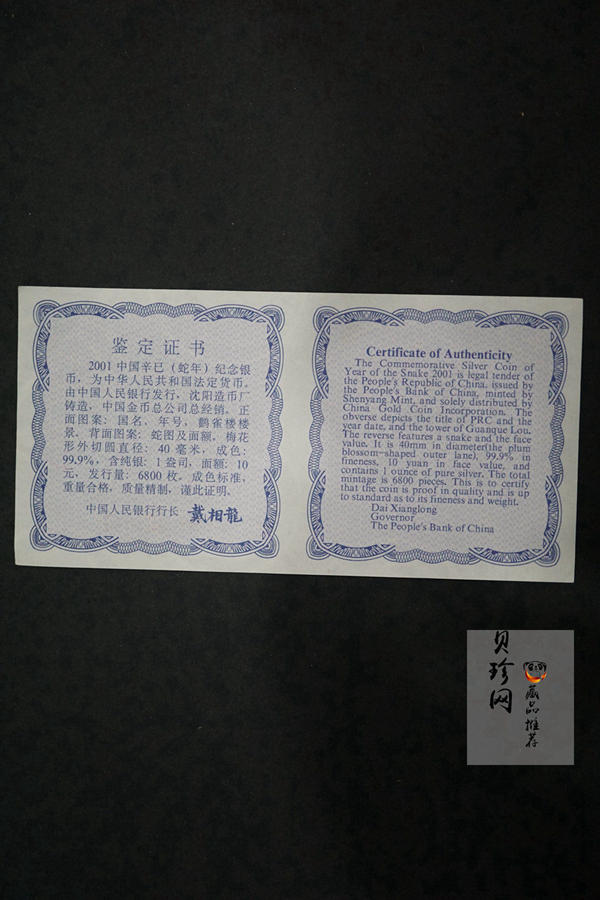 鉴定证书
2001中国辛巳（蛇年）纪念银
币，为中华人民共和国法定货币。
由中国人民银行发行，沈阳造币厂
铸造，中国金币总公司总经销。正
面图案：国名，年号，鹳雀楼楼
景，背面图案：蛇图及面额，梅花
形外切圆直径：40毫米，成色：
99.9%，含纯银：1盎司，面额：10
元，发行量：6800枚。成色标准，
重量合格，质量精制，谨此证明。
中国人民银行行长 戴相龍
Certificate of Authenticity
The Commemorative Silver Coin of
Year of the Snake 2001 is legal tender of
the People's Republic of China, issued by
the People's Bank of China, minted by
Shenyang Mint, and solely distributed by
China Gold Coin Incorporation. The
obverse depicts the title of PRC and the
year date, and the tower of Guanque Lou.
The reverse features a snake and the face
value. It is 40mm in diameter(the plum
blossom-shaped outer lane), 99.9% in
fineness, 10 yuan in face value, and
contains 1 ounce of pure silver. The total
mintage is 6800 pieces. This is to certify
that the coin is proof in quality and is up
to standard as to its fineness and weight.
Dai Xianglong
Governor
The People's Bank of China
贝珍网
藏品推荐